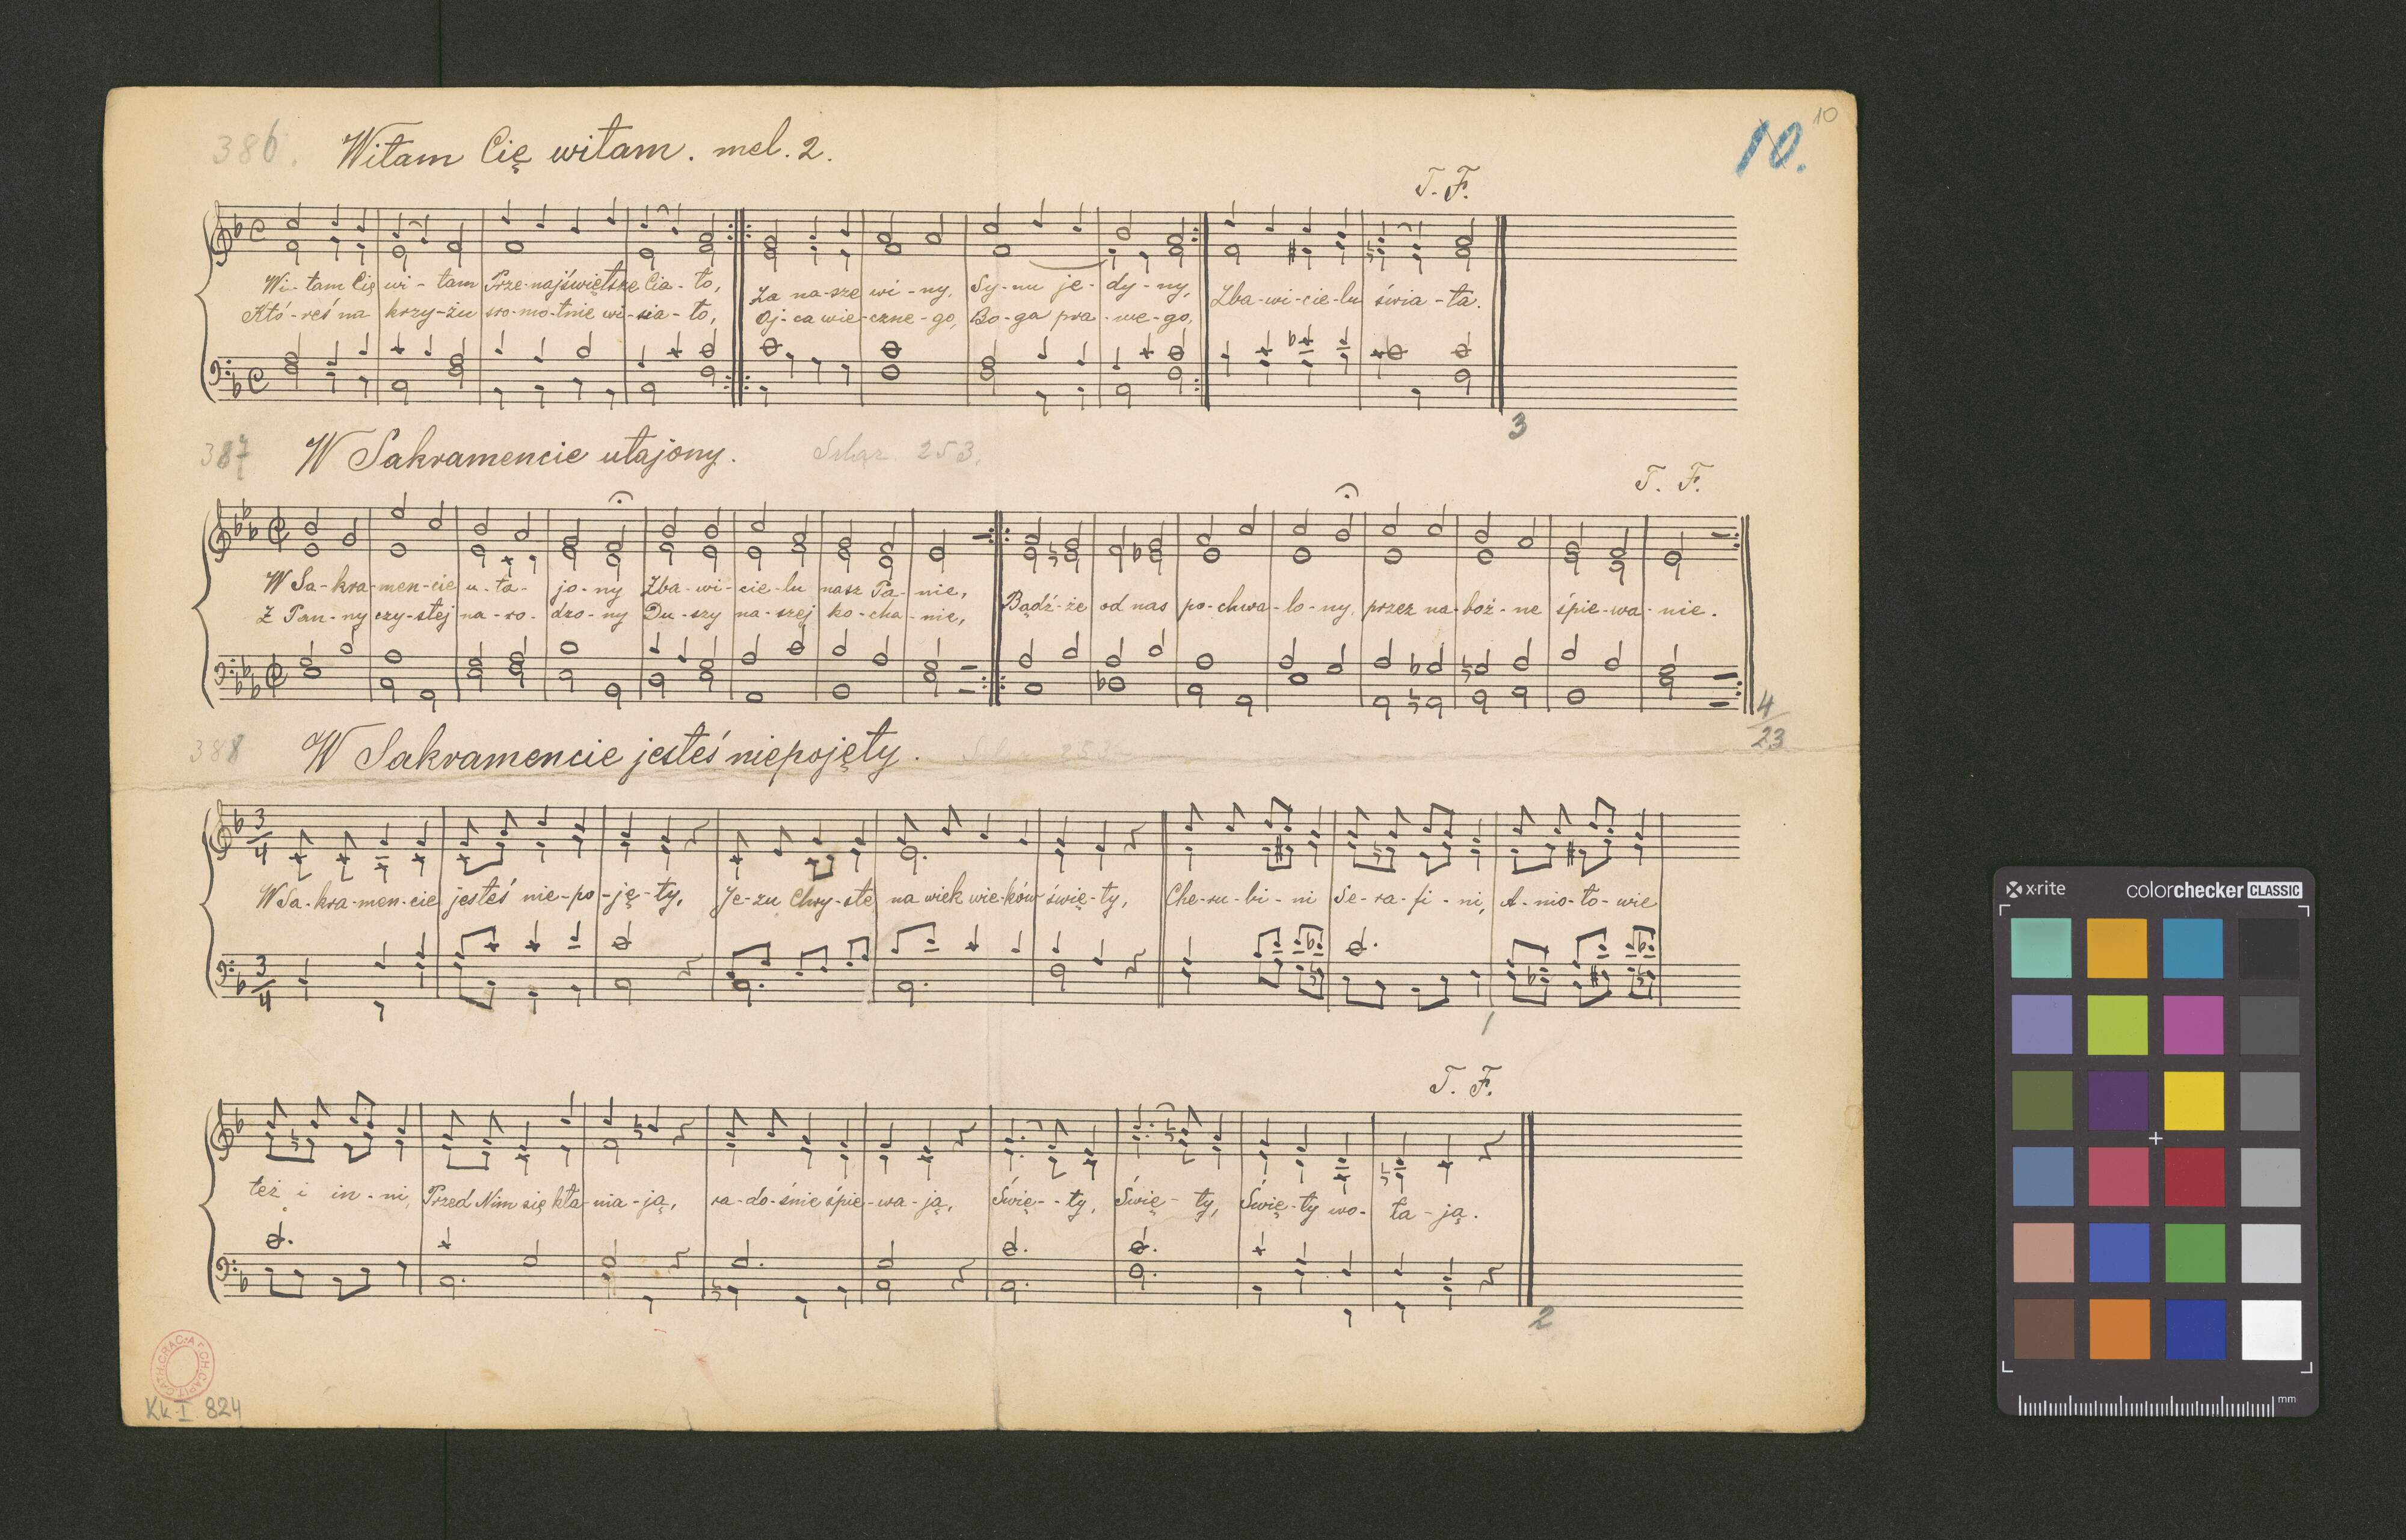 10
10.
386. Witam Cię witam. mel. 2.
T. F.
Wi-tam Cię wi-tam Prze-najświętsze Cia-ło, Za na-sze wi-ny, Sy-nu je-dy-ny, Zba-wi-cie-lu świa-ta.
Któ-reś na krzy-żu sro-mo-tnie wi-sia-ło, Oj-ca wie-czne-go, Bo-ga pra-we-go,
3
387 W Sakramencie utajony. 253.
T. F.
W Sa-kra-men-cie u-ta-jo-ny Zba-wi-cie-lu nasz Pa-nie, Bądź-że od nas po-chwa-lo-ny, przez na-boż-ne śpie-wa-nie.
Z Pan-ny czy-stej na-ro-dzo-ny Du-szy na-szej ko-cha-nie,
4
23
388 W Sakramencie jesteś niepojęty. 253
3 4
W Sa-kra-men-cie jesteś nie-po-ję-ty, Je-zu Chry-ste na wiek wie-ków świę-ty, Che-ru-bi-ni Se-ra-fi-ni, A-nio-ło-wie
3 4
1
T. F.
też i in-ni, Przed Nim się kła-nia-ją, ra-do-śnie śpie-wa-ją, Świę--ty, Świę-ty, Świę-ty wo-ła-ją.
2
Kk I 824
x-rite colorchecker CLASSIC
mm